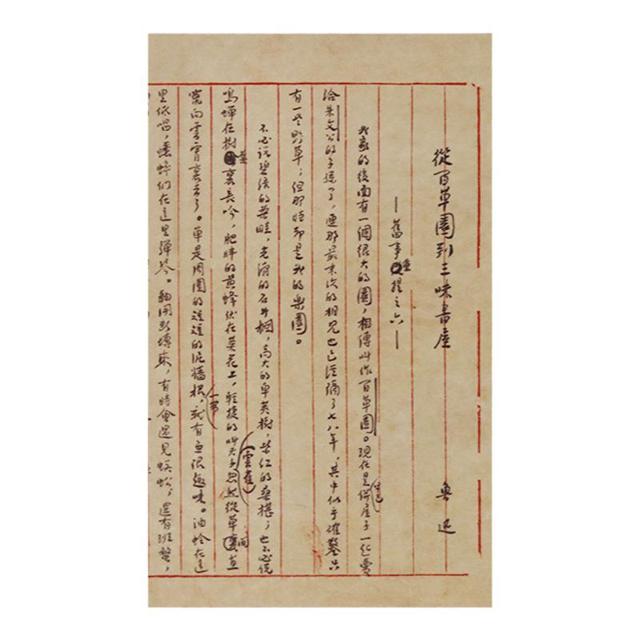 從百草園到三味書屋 魯迅
——舊事重提之六——
我家的後面有一個很大的園,相傳叫作百草園。現在是早已併屋子一起賣
給朱文公的子孫了,連那最末次的相見也已經隔了七八年,其中似乎確鑿只
有一些野草;但那時却是我的樂園。
不必說碧綠的菜畦,光滑的石井欄,高大的皂莢樹,紫紅的桑椹;也不必說
鳴蟬在樹葉裏長吟,肥胖的黃蜂伏在菜花上,輕捷的叫天子(雲雀)忽然從草間直
竄向雲霄裏去了。單是周圍的短短的泥牆根一帶,就有無限趣味。油蛉在這
里低唱,蟋蟀們在這里彈琴。翻開斷磚來,有時會遇見蜈蚣;還有斑蝥,